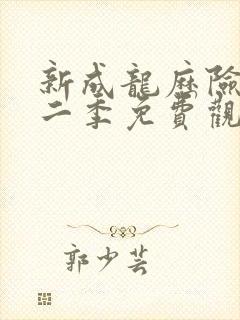 新成龍历險
二季免費觀
郭少芸